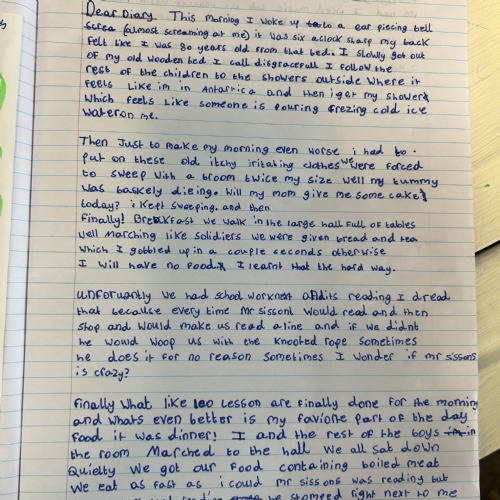 Dear Diary. This Morning I woke up to a ear piecing bell
(almost screaming at me) it was six aclock sharp my back
felt like I was 80 years old from that bed. I slowly got out
of my old wooden bed I call disgracefull I follow the
rest of the children to the showers outside where it
feels like im in Antartica and then i get my shower
which feels like someone is pouring frezing cold ice
water on me.
Then Just to make my morning even worse i had to
put on these old itchy iritating clothes we were forced
to sweep with a broom twice my size well my tummy
was baskely dieing. Will my mom give me some cake
today? i kept sweeping. and then
finally! Breakfast we walk in the large hall full of tables
well Marching like solidiers we were given bread and tea
which I gobbled up in a couple seconds otherwise
I will have no food. I learnt that the hard way.
unforwantly we had school work next and its reading I dread
that because every time Mr sissons would read and then
stop and would make us read a line and if we didnt
he would woop us with the knooted rope sometimes
he does it for no reason sometimes I wonder if mr sissons
is crazy?
finally What like 100 Lesson are finally done for the morning
and whats even better is my faviorte part of the day
food it was dinner! I and the rest of the boys in
the room Marched to the hall we all sat down
Quielty We got our food containing boiled meat
We eat as fast as i could mr sissons was reading but
reading we stopped right next to me